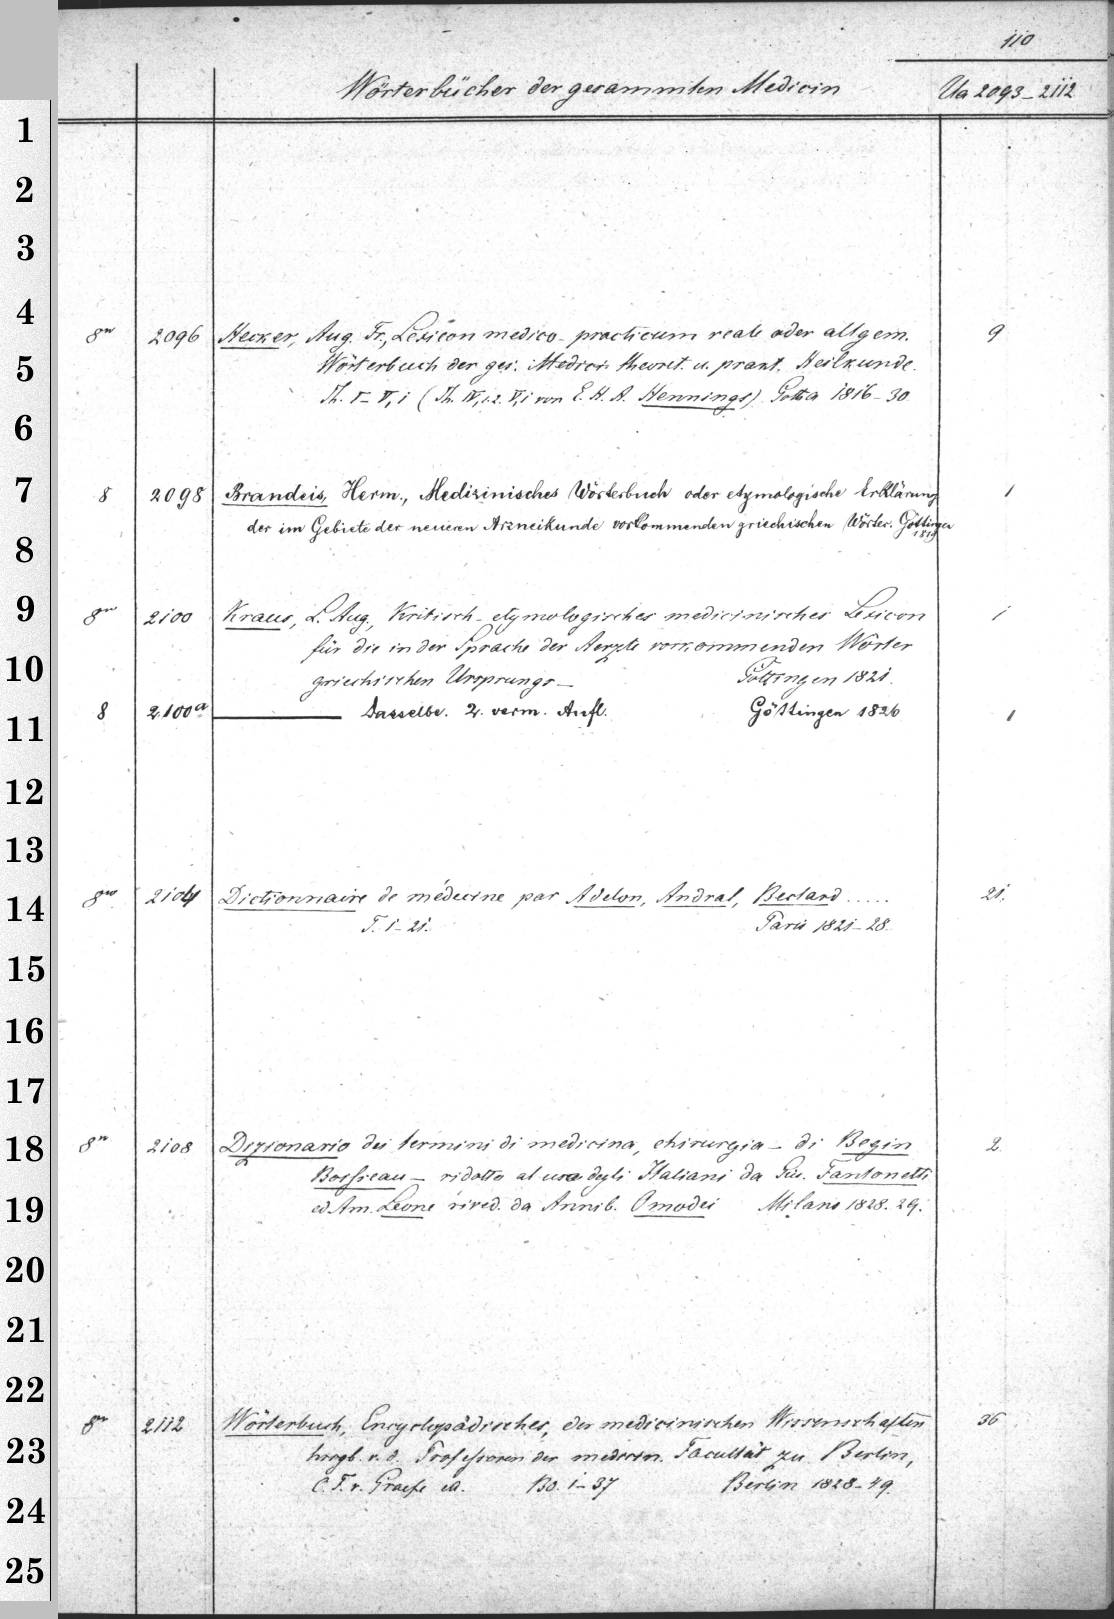 110
Wörterbücher der gesammten Medicin Ua 2093-2112
1
2
3
4
8vo 2096 Hecker, Aug. Fr., Lexicon medico-practicum reale oder allgem. 9
5 Wörterbuch der ges. Medicin theoret. u. prakt. Heilkunde.
Th. I-V,1 (Th. IV,1.2. V,1 von E. H. A. Hennings) Gotha 1816-30
6
7 8 2098 Brandeis, Herm., Medizinisches Wörterbuch oder etymologische Erklärung 1
der im Gebiete der neueren Arzneikunde vorkommenden griechischen Wörter. Göttingen
1819
8
9 8vo 2100 Kraus, L. Aug., Kritisch-etymologisches medicinisches Lexicon 1
für die in der Sprache der Aerzte vorkommenden Wörter
10
griechischen Ursprungs- Göttingen 1821.
8 2100a Dasselbe. 2. verm. Aufl. Göttingen 1826 1
11
12
13
14 8vo 2104 Dictionnaire de médecine par Adelon, Andral, Beclard ..... 21.
T. 1-21. Paris 1821-28.
15
16
17
18 8vo 2108 Dizionario dei termini di medicina, chirurgia- di Begin 2
Boisseau- ridotto al uso degli Italiani da Giu. Fantonetti
19 ed Am. Leone rived. da Annib. Omodei Milano 1828. 29.
20
21
22
8vo 2112 Wörterbuch, Encyclopädisches, der medicinischen Wissenschaften 36
23 hrsgb. v. d. Professoren der medicin. Facultät zu Berlin,
C. F. v. Graefe ed. Bd. 1-37 Berlin 1828-49.
24
25